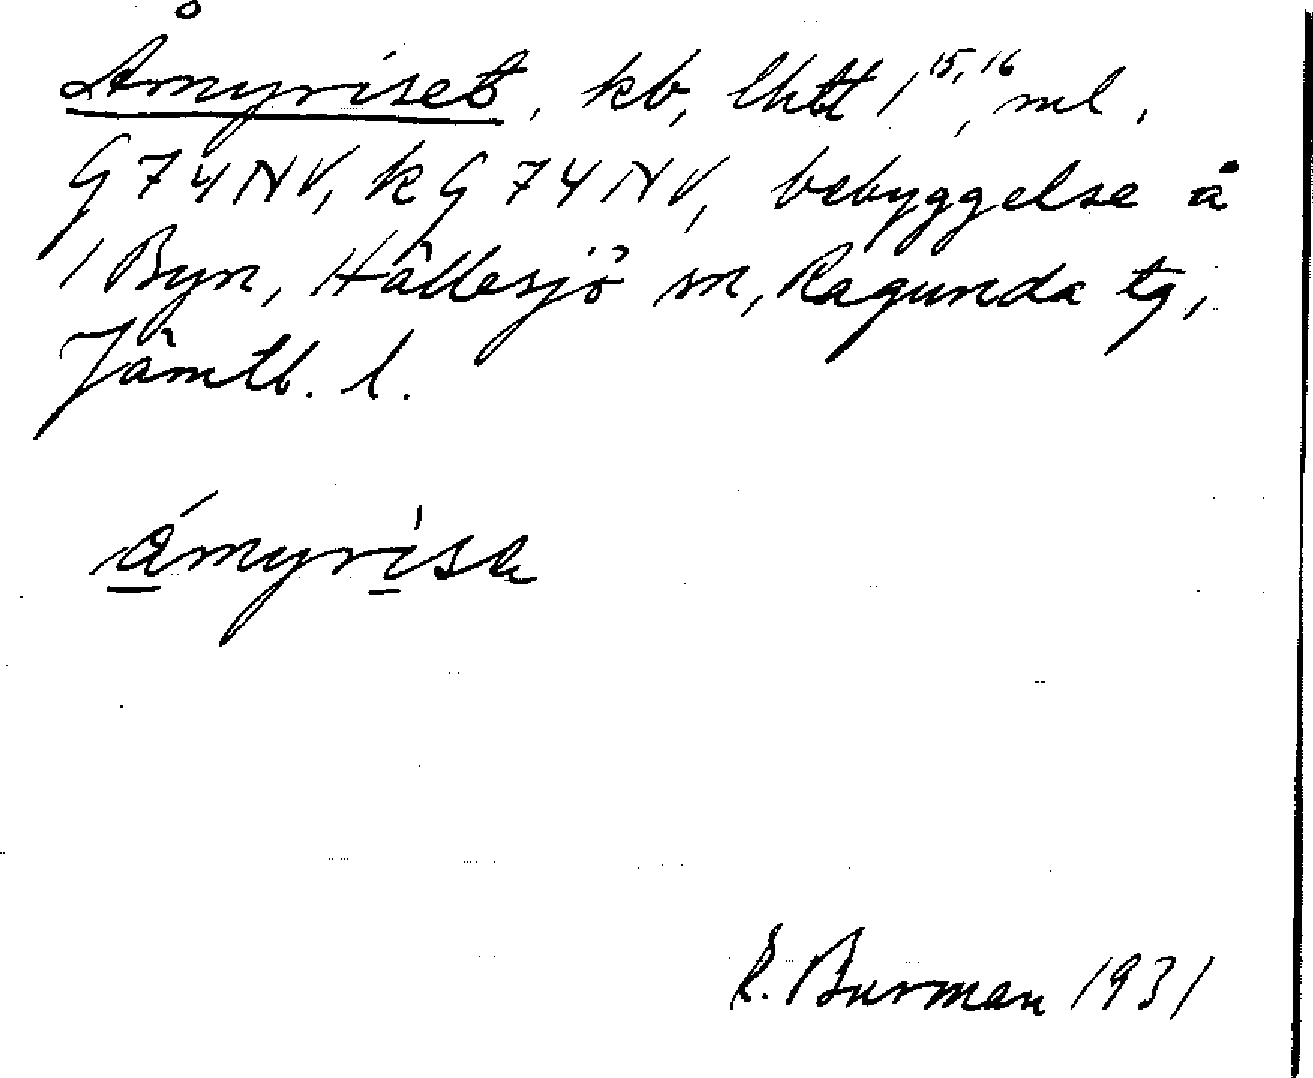 Åmyriset, kb, lhtt 1¹⁵,¹⁶, ml,
G 74 NV, k G 74 NV, bebyggelse å
1 Byn, Hällesjö sn, Ragunda tg,
Jämtl. l.
åmyrisa
R. Burman 1931